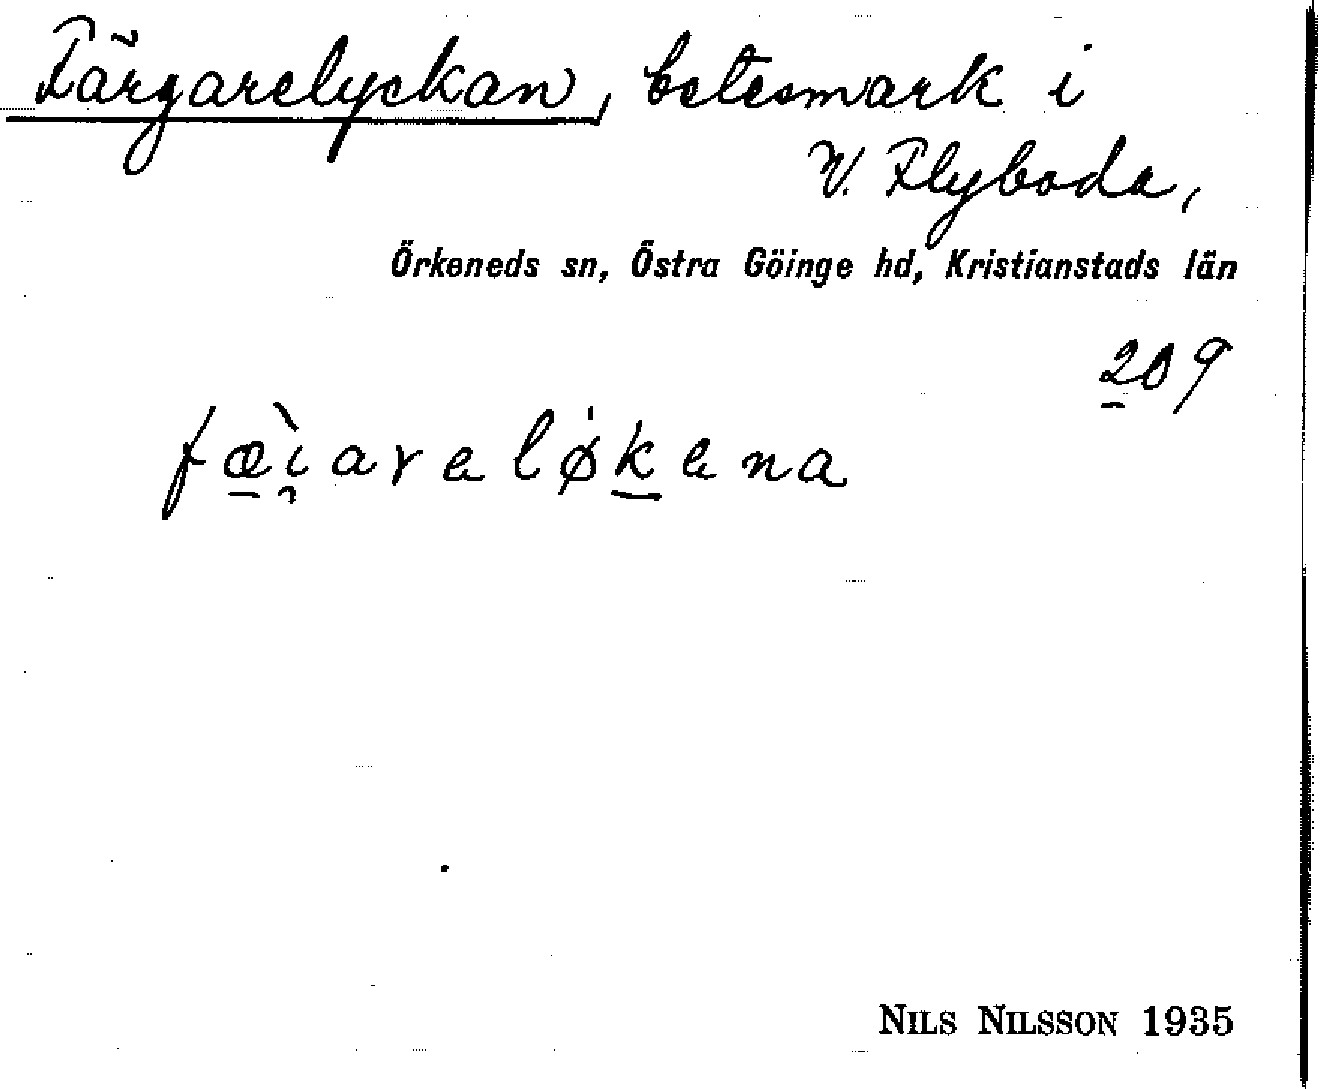 Färgarelyckan, betesmark i
V. Flyboda,
Örkeneds sn, Östra Göinge hd, Kristianstads län
209
fæ̠̀i̯arə lø̍kəna
NILS NILSSON 1935